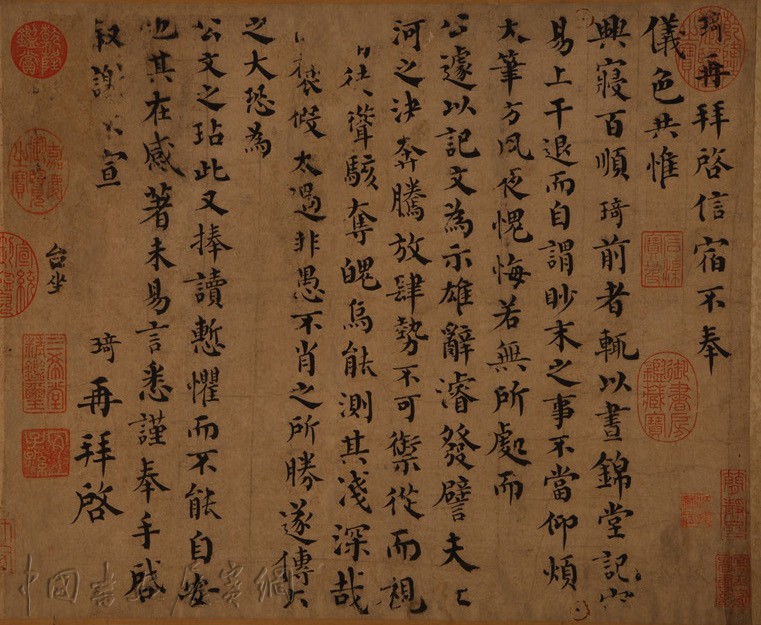 琦再拜啓信宿不奉
儀色共惟
興寢百順琦前者輒以晝錦堂記
易上干退而自謂眇末之事不當仰煩
大筆方夙夜愧悔若無所處而
公遽以記文為示雄辭濬發譬夫
河之決奔騰放肆勢不可禦從而視
徒聳駭奪魄烏能測其淺深哉
褒假太過非愚不肖之所勝遂傳
之大恐為
公文之玷此又捧讀慙懼而不能自安
也其在感著未易言悉謹奉手啓
敘謝不宣
琦再拜啓
台坐
乾隆鑑賞
石渠寶笈
御書房鑑藏寶
嘉慶御覽之寶
三希堂精鑑璽
宜子孫
中國書法展賽網